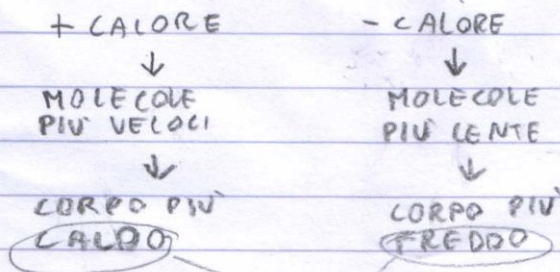 + CALORE
↓
MOLECOLE
PIÙ VELOCI
↓
CORPO PIÙ
CALDO
- CALORE
↓
MOLECOLE
PIÙ LENTE
↓
CORPO PIÙ
FREDDO